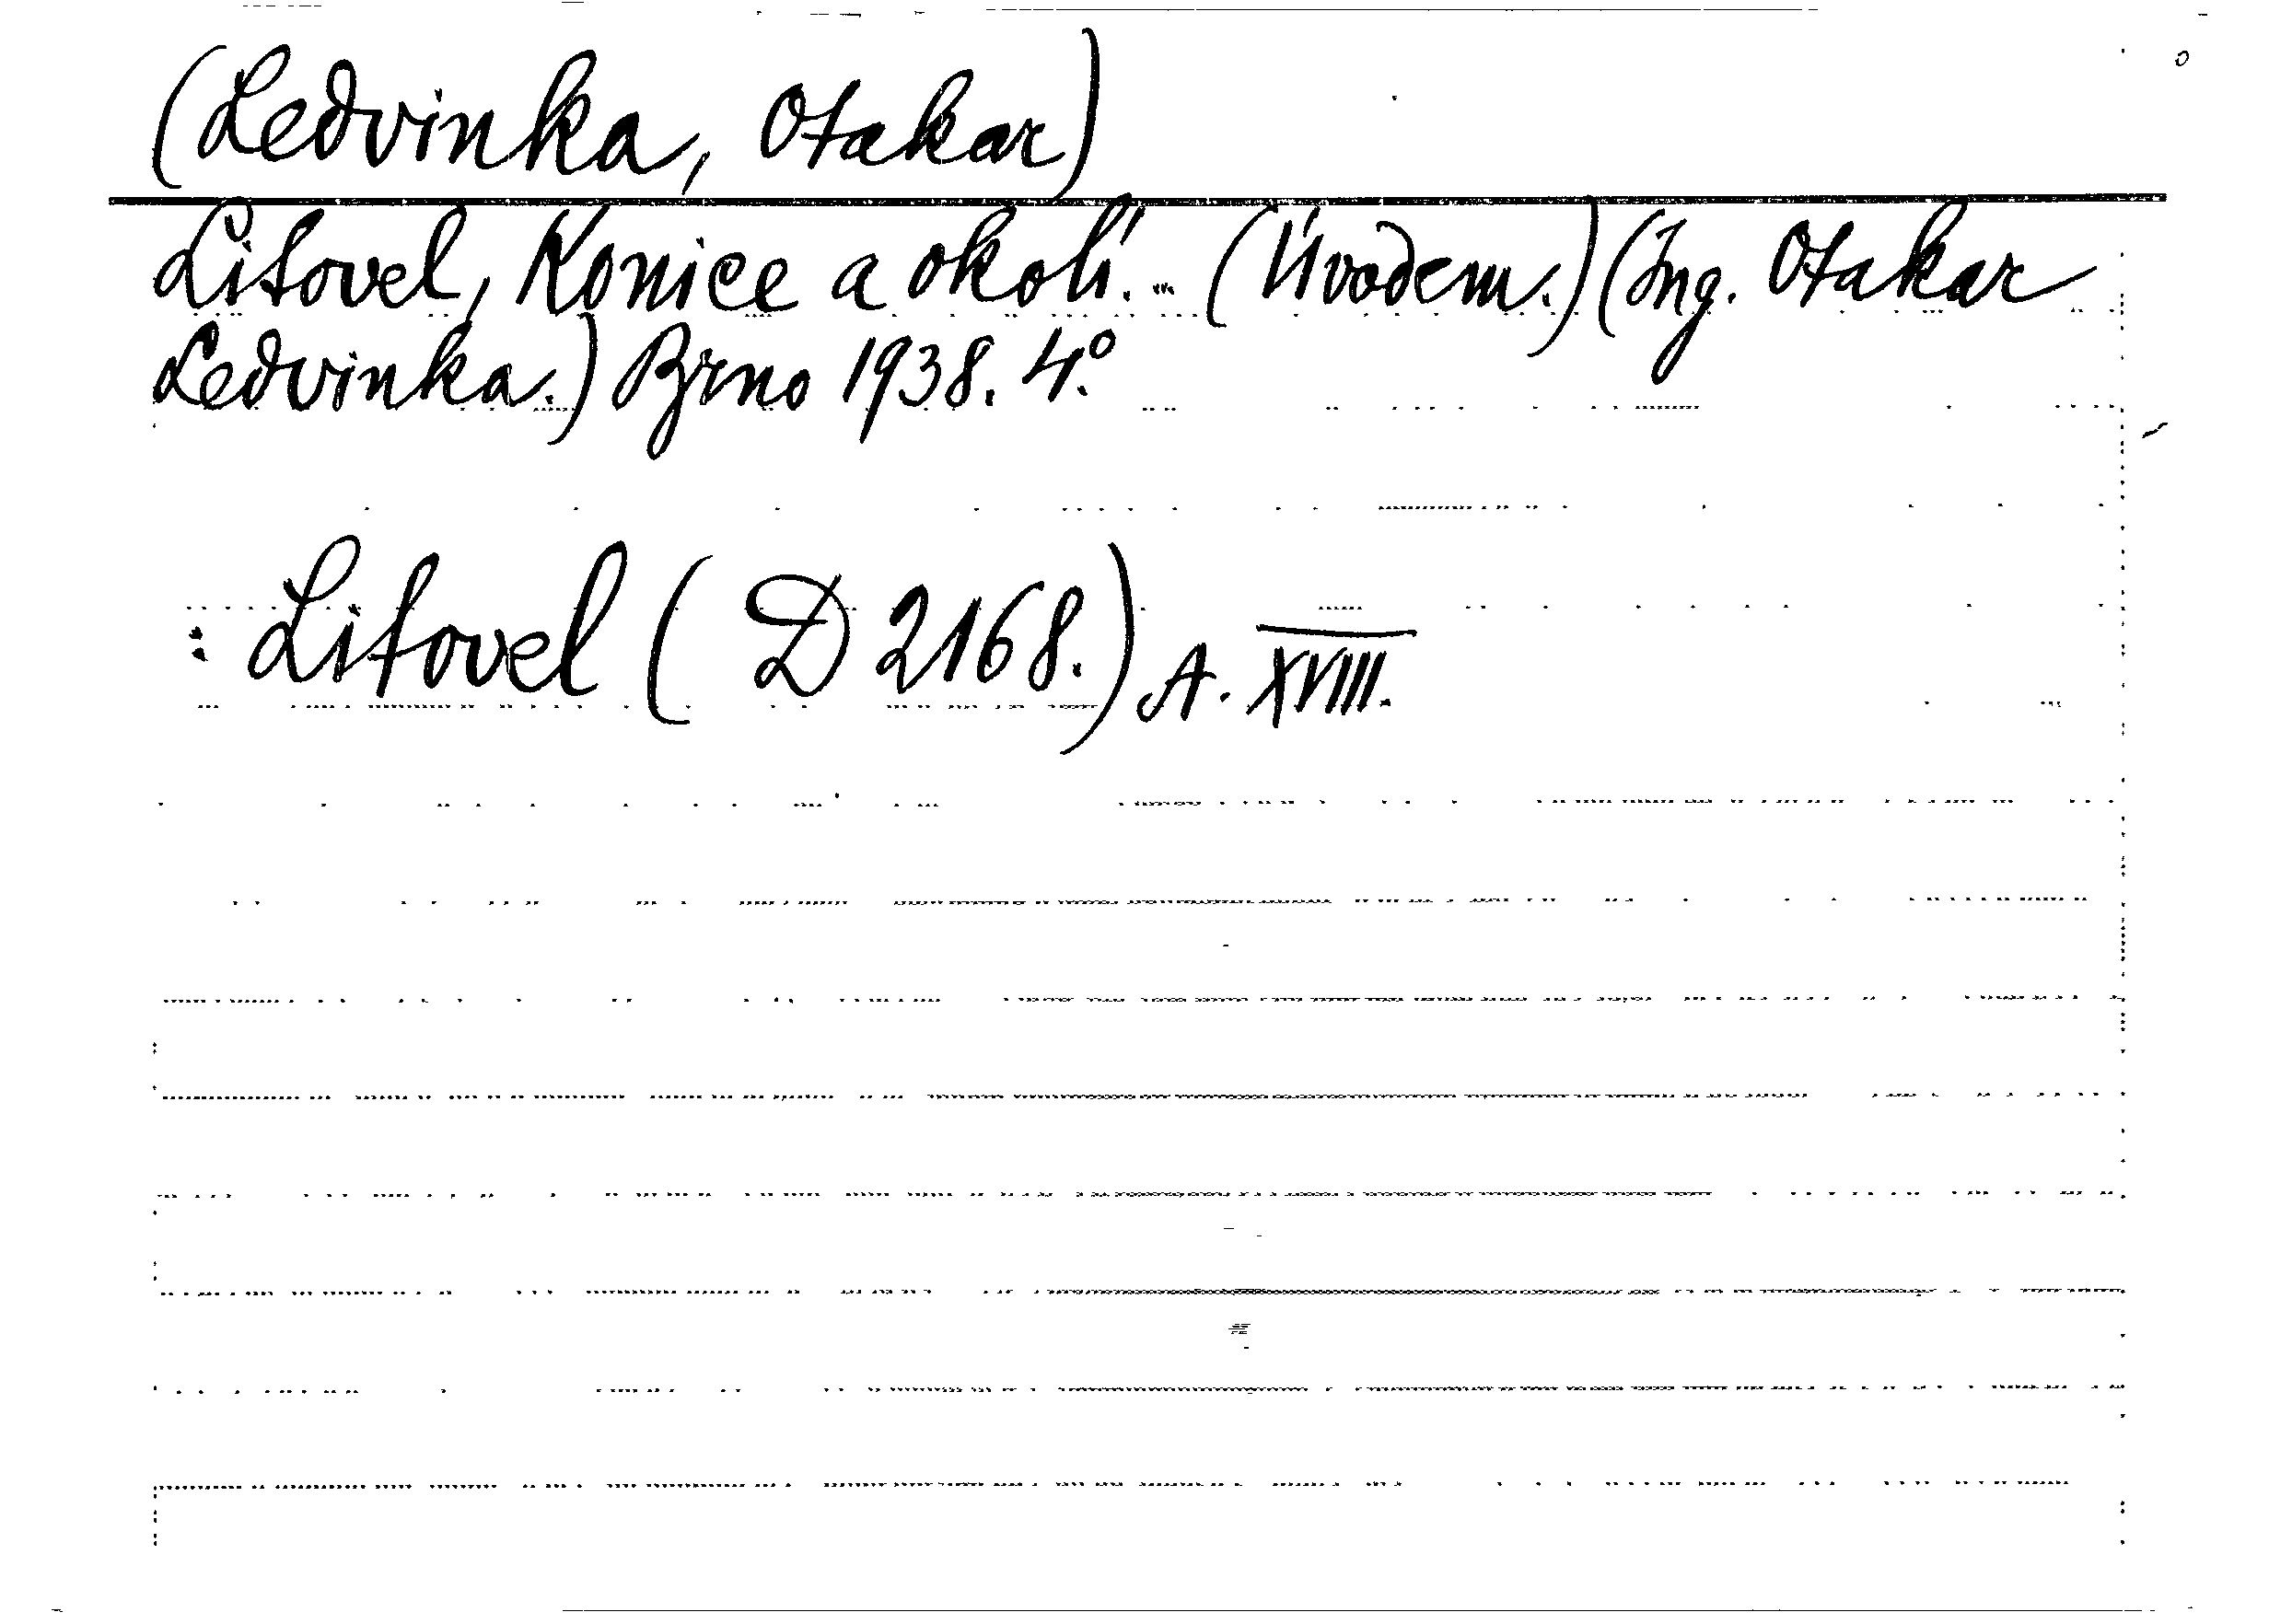 (Ledvinka, Otakar)
Litovel, Konice a okolí... (Úvodem.) (Ing. Otakar
Ledvinka.) Brno 1938. 4.°
: Litovel ( D 2168.) A. XVIII.